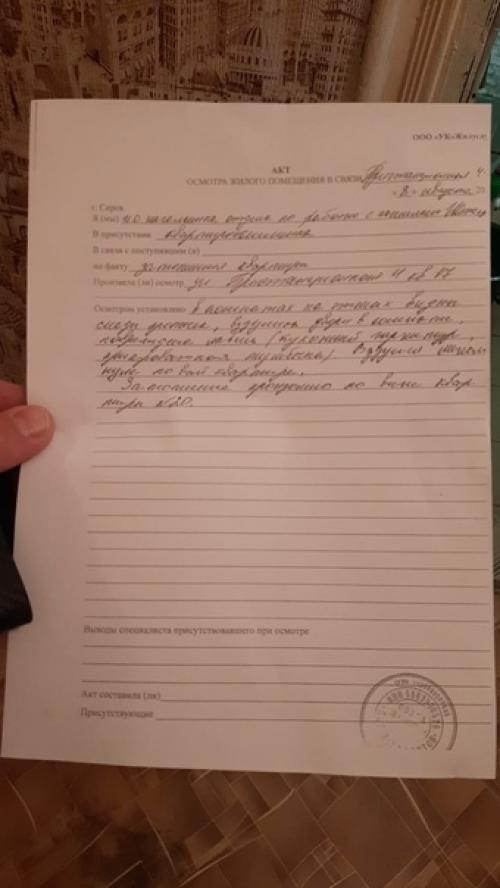 ООО «УК»Жилуслу
АКТ
ОСМОТРА ЖИЛОГО ПОМЕЩЕНИЯ В СВЯЗИ Пристанционная 4-
«8» августа 20
г. Серов
Я (мы) И.О. начальника отдела по работе с
В присутствии квартиросъемщика
В связи с поступлении (я)
по факту затопления квартиры
Произвела (ли) осмотр ул Пристанционная 4 кв 17
Осмотром установлено в комнатах на стенах видны
следы вздулись двери в комнате,
повреждена мебель (кухонный гарнитур,
) Вздулся
по всей квартире.
Затопление произошло по вине квар
тиры №20.
Выводы специалиста присутствовавшего при осмотре
Акт составила (ли)
Присутствующие